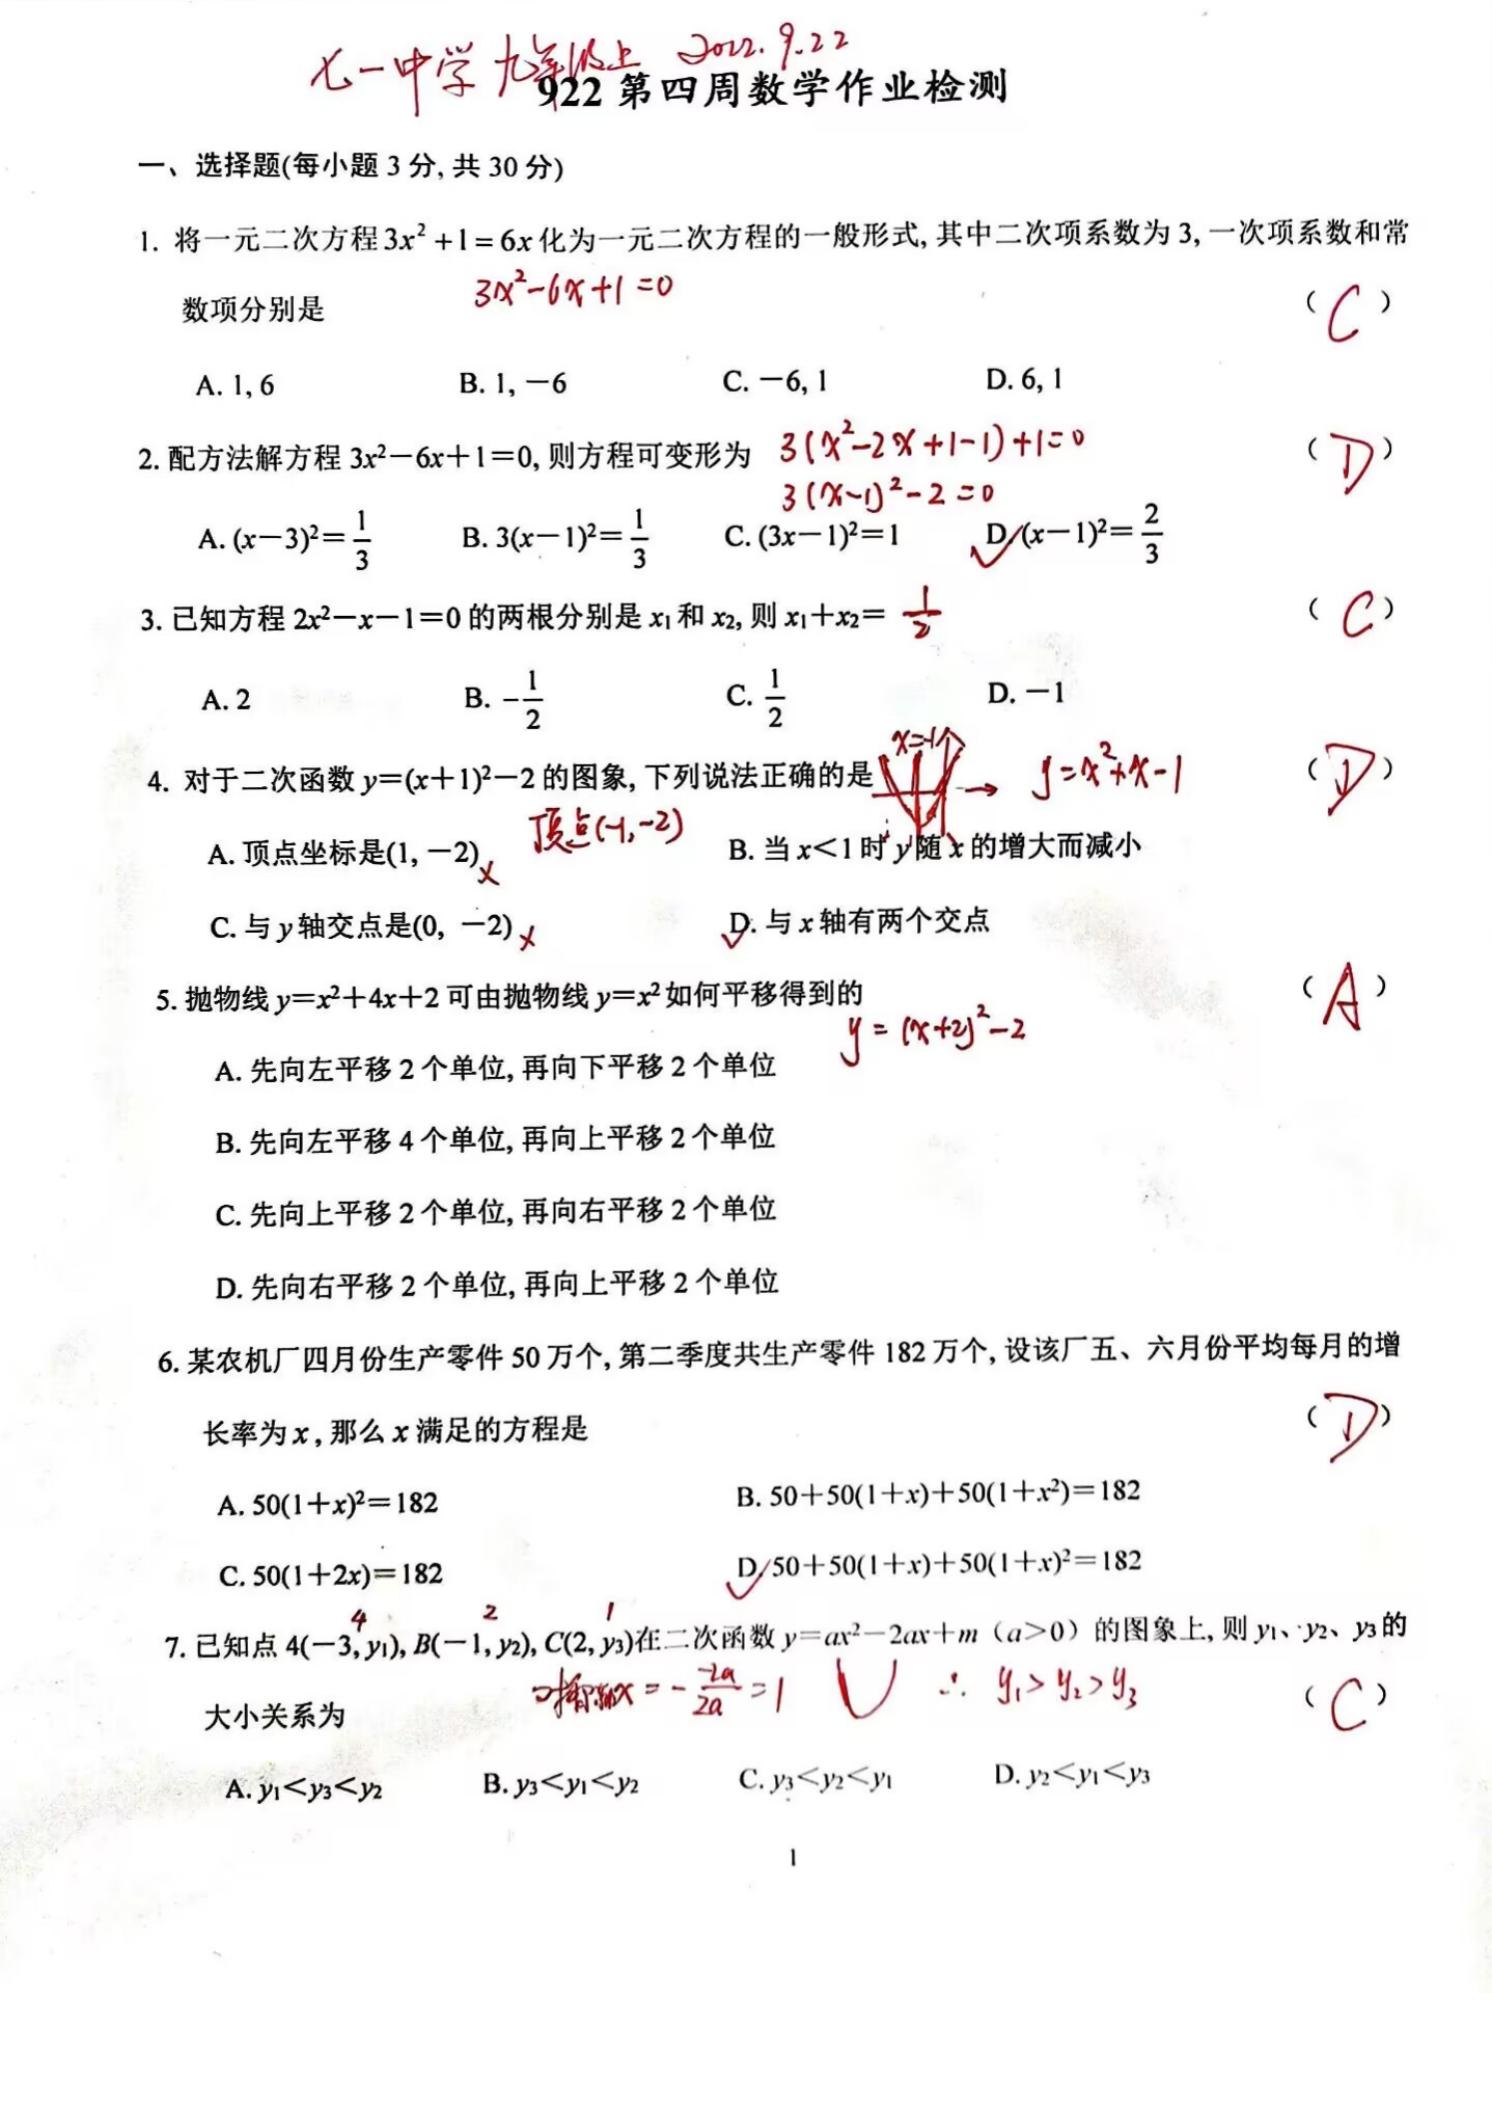 七一中学 九年级上 2022.9.22
922 第四周数学作业检测
一、选择题(每小题 3 分, 共 30 分)
1. 将一元二次方程 3x²+1=6x 化为一元二次方程的一般形式, 其中二次项系数为 3, 一次项系数和常
3x²-6x+1=0
数项分别是 ( C )
A. 1, 6 B. 1, －6 C. －6, 1 D. 6, 1
2. 配方法解方程 3x²－6x＋1＝0, 则方程可变形为 3(x²-2x+1-1)+1=0 ( D )
3(x-1)²-2=0
A. (x－3)²＝1/3 B. 3(x－1)²＝1/3 C. (3x－1)²＝1 D. (x－1)²＝2/3
3. 已知方程 2x²－x－1＝0 的两根分别是 x₁ 和 x₂, 则 x₁＋x₂＝ 1/2 ( C )
A. 2 B. -1/2 C. 1/2 D. －1
4. 对于二次函数 y＝(x＋1)²－2 的图象, 下列说法正确的是 x=-1 y=x²+x-1 ( D )
顶点(-1,-2)
A. 顶点坐标是(1, －2) x B. 当 x＜1 时 y 随 x 的增大而减小
C. 与 y 轴交点是(0, －2) x D. 与 x 轴有两个交点
5. 抛物线 y＝x²＋4x＋2 可由抛物线 y＝x² 如何平移得到的 ( A )
y=(x+2)²-2
A. 先向左平移 2 个单位, 再向下平移 2 个单位
B. 先向左平移 4 个单位, 再向上平移 2 个单位
C. 先向上平移 2 个单位, 再向右平移 2 个单位
D. 先向右平移 2 个单位, 再向上平移 2 个单位
6. 某农机厂四月份生产零件 50 万个, 第二季度共生产零件 182 万个, 设该厂五、六月份平均每月的增
长率为 x, 那么 x 满足的方程是 ( D )
A. 50(1＋x)²＝182 B. 50＋50(1＋x)＋50(1＋x²)＝182
C. 50(1＋2x)＝182 D. 50＋50(1＋x)＋50(1＋x)²＝182
4 2 1
7. 已知点 4(－3, y₁), B(－1, y₂), C(2, y₃)在二次函数 y＝ax²－2ax＋m（a＞0）的图象上, 则 y₁、y₂、y₃ 的
对称轴x=-\frac{-2a}{2a}=1 ∴ y₁>y₂>y₃
大小关系为 ( C )
A. y₁＜y₃＜y₂ B. y₃＜y₁＜y₂ C. y₃＜y₂＜y₁ D. y₂＜y₁＜y₃
1